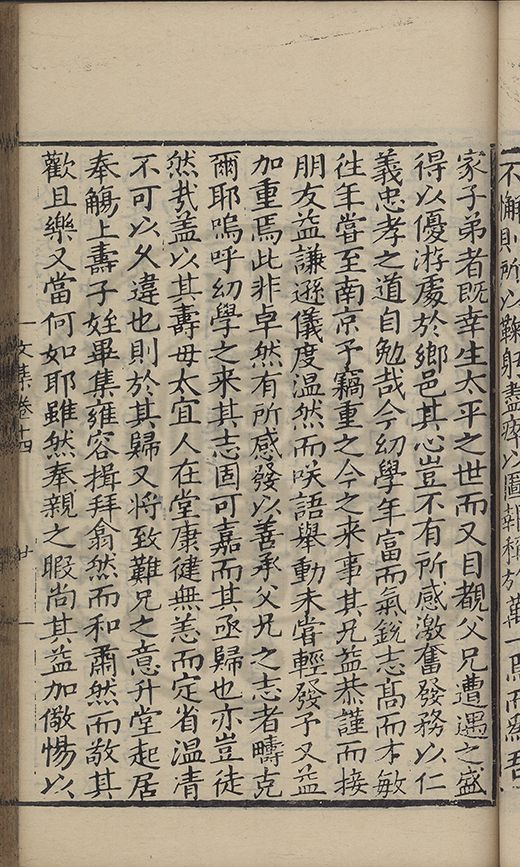 不懈則所以鞠躬盡瘁以圖報稱於萬一焉而爲吾
家子弟者既幸生太平之世而又目覩父兄遭遇之盛
得以優游處於鄉邑其心豈不有所感激奮發務以仁
義忠孝之道自勉哉今幼學年富而氣銳志髙而才敏
徃年嘗至南京予竊重之今之来事其兄益恭謹而接
朋友益謙遜儀度温然而咲語舉動未嘗輕發予又益
加重焉此非卓然有所感發以善承父兄之志者疇克
爾耶嗚呼幼學之来其志固可嘉而其亟歸也亦豈徒
然㢤盖以其壽母太宜人在堂康健無恙而定省温凊
不可以久違也則於其歸又将致難兄之意升堂起居
奉觴上壽子姪畢集雍容揖拜翕然而和肅然而敬其
歡且樂又當何如耶雖然奉親之暇尚其益加儆惕以
文集卷十四
廿一